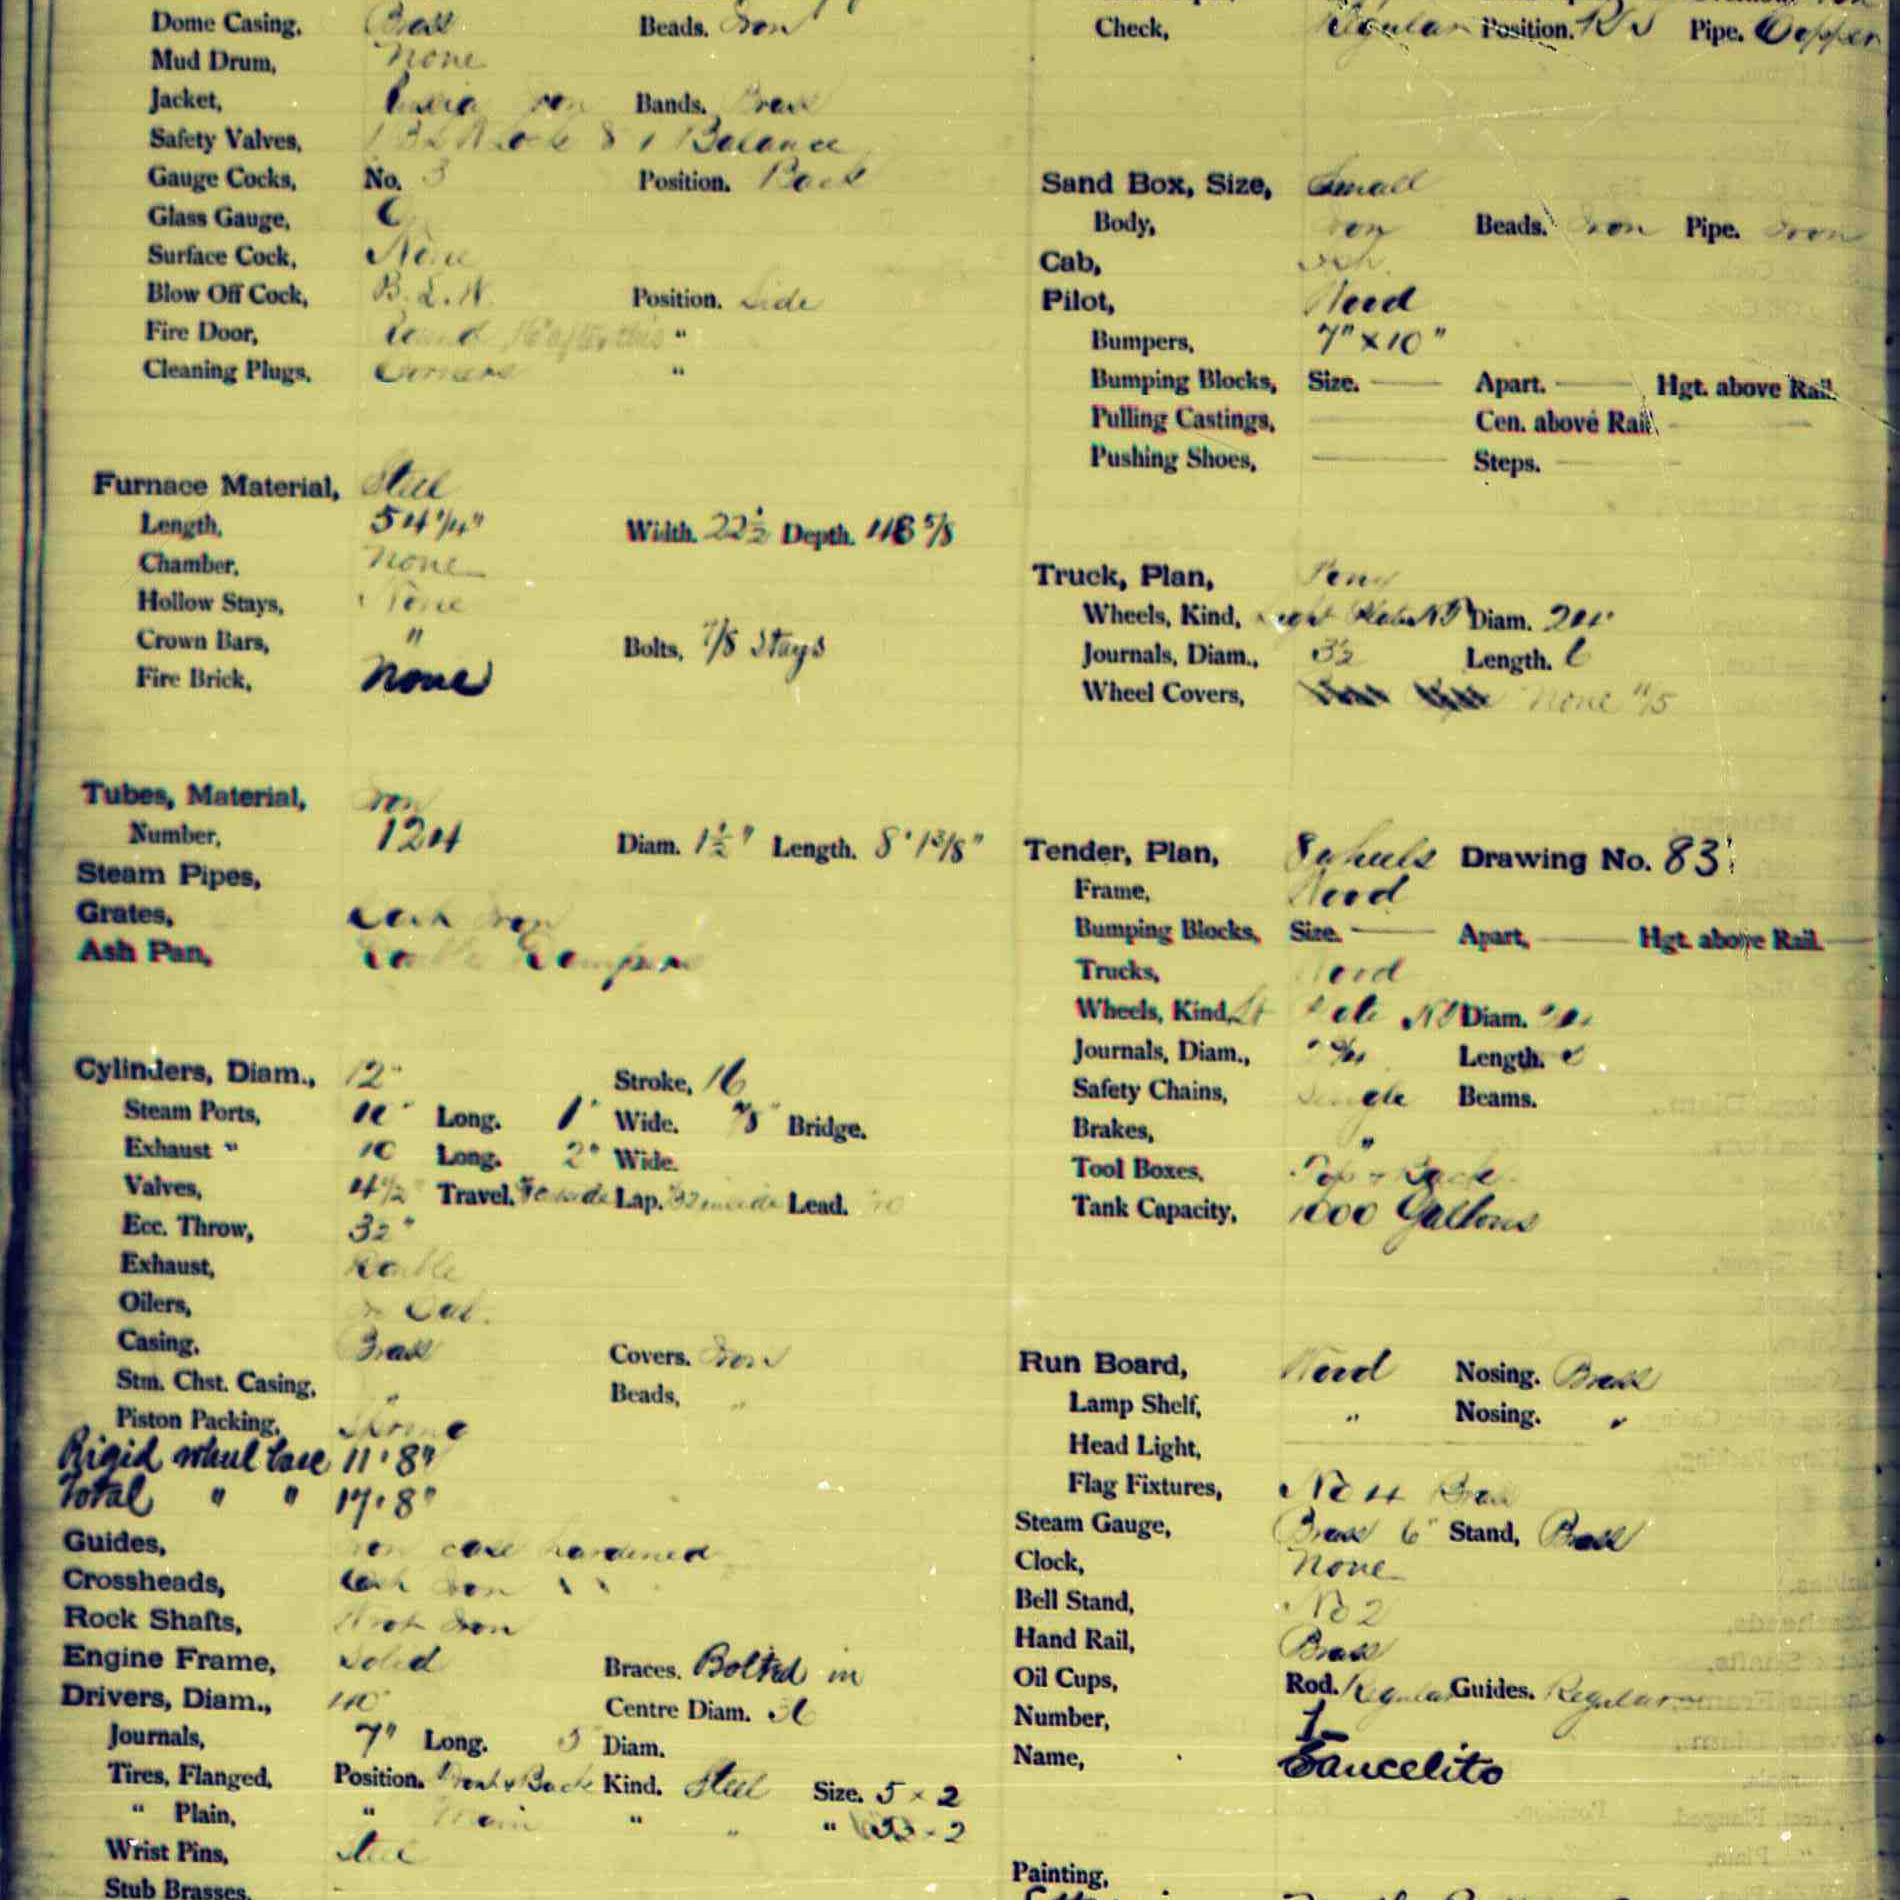 Dome Casing, Brass Beads. Iron
Mud Drum, None
Jacket, Russia Iron Bands. Brass
Safety Valves, & 1 Balance
Gauge Cocks, No. 3 Position. Back
Glass Gauge,
Surface Cock, None
Blow Off Cock, B.L.W. Position. Side
Fire Door, Round "
Cleaning Plugs, Corners "
Furnace Material, Steel
Length, 54 1/4" Width. 22 1/2 Depth. 48 5/8
Chamber, None
Hollow Stays, None
Crown Bars, " Bolts, 7/8 Stays
Fire Brick, None
Tubes, Material, Iron
Number, 124 Diam. 1 1/2" Length. 8' 1 3/8"
Steam Pipes,
Grates, Cast Iron
Ash Pan, Double Dampers
Cylinders, Diam., 12" Stroke, 16
Steam Ports, Long. 1" Wide. 7/8" Bridge.
Exhaust " 10 Long. 2" Wide.
Valves, 4 1/2" Travel. Lap. Lead.
Ecc. Throw,
Exhaust, Double
Oilers, in Cab.
Casing, Brass Covers. Iron
Stm. Chst. Casing, " Beads, "
Piston Packing, Spring
Rigid wheel base 11' 8"
Total " " 17' 8"
Guides, Iron case hardened
Crossheads, Cast Iron
Rock Shafts, Wrot Iron
Engine Frame, Solid Braces. Bolted in
Drivers, Diam., Centre Diam. 36
Journals, 7" Long. 5 Diam.
Tires, Flanged, Position. Front & Back Kind. Steel Size. 5 × 2
" Plain, " Main " " "
Wrist Pins, Steel
Stub Brasses,
Check, Regular Position. Pipe. Copper
Sand Box, Size, Small
Body, Iron Beads. Iron Pipe. Iron
Cab, Ash
Pilot, Wood
Bumpers, 7" × 10"
Bumping Blocks, Size. — Apart. — Hgt. above Rail.
Pulling Castings, — Cen. above Rail —
Pushing Shoes, — Steps. —
Truck, Plan, Pony
Wheels, Kind, Diam. 24"
Journals, Diam., Length. 6
Wheel Covers, None
Tender, Plan, 8 wheels Drawing No. 83
Frame, Wood
Bumping Blocks, Size. — Apart. — Hgt. above Rail. —
Trucks, Wood
Wheels, Kind, Diam.
Journals, Diam., Length. 6
Safety Chains, Single Beams.
Brakes, "
Tool Boxes, Top & Back
Tank Capacity, 1000 Gallons
Run Board, Wood Nosing. Brass
Lamp Shelf, " Nosing. "
Head Light, —
Flag Fixtures, No 4 Brass
Steam Gauge, Brass 6" Stand, Brass
Clock, None
Bell Stand, No 2
Hand Rail, Brass
Oil Cups, Rod. Regular Guides. Regular
Number, 1
Name, Saucelito
Painting,